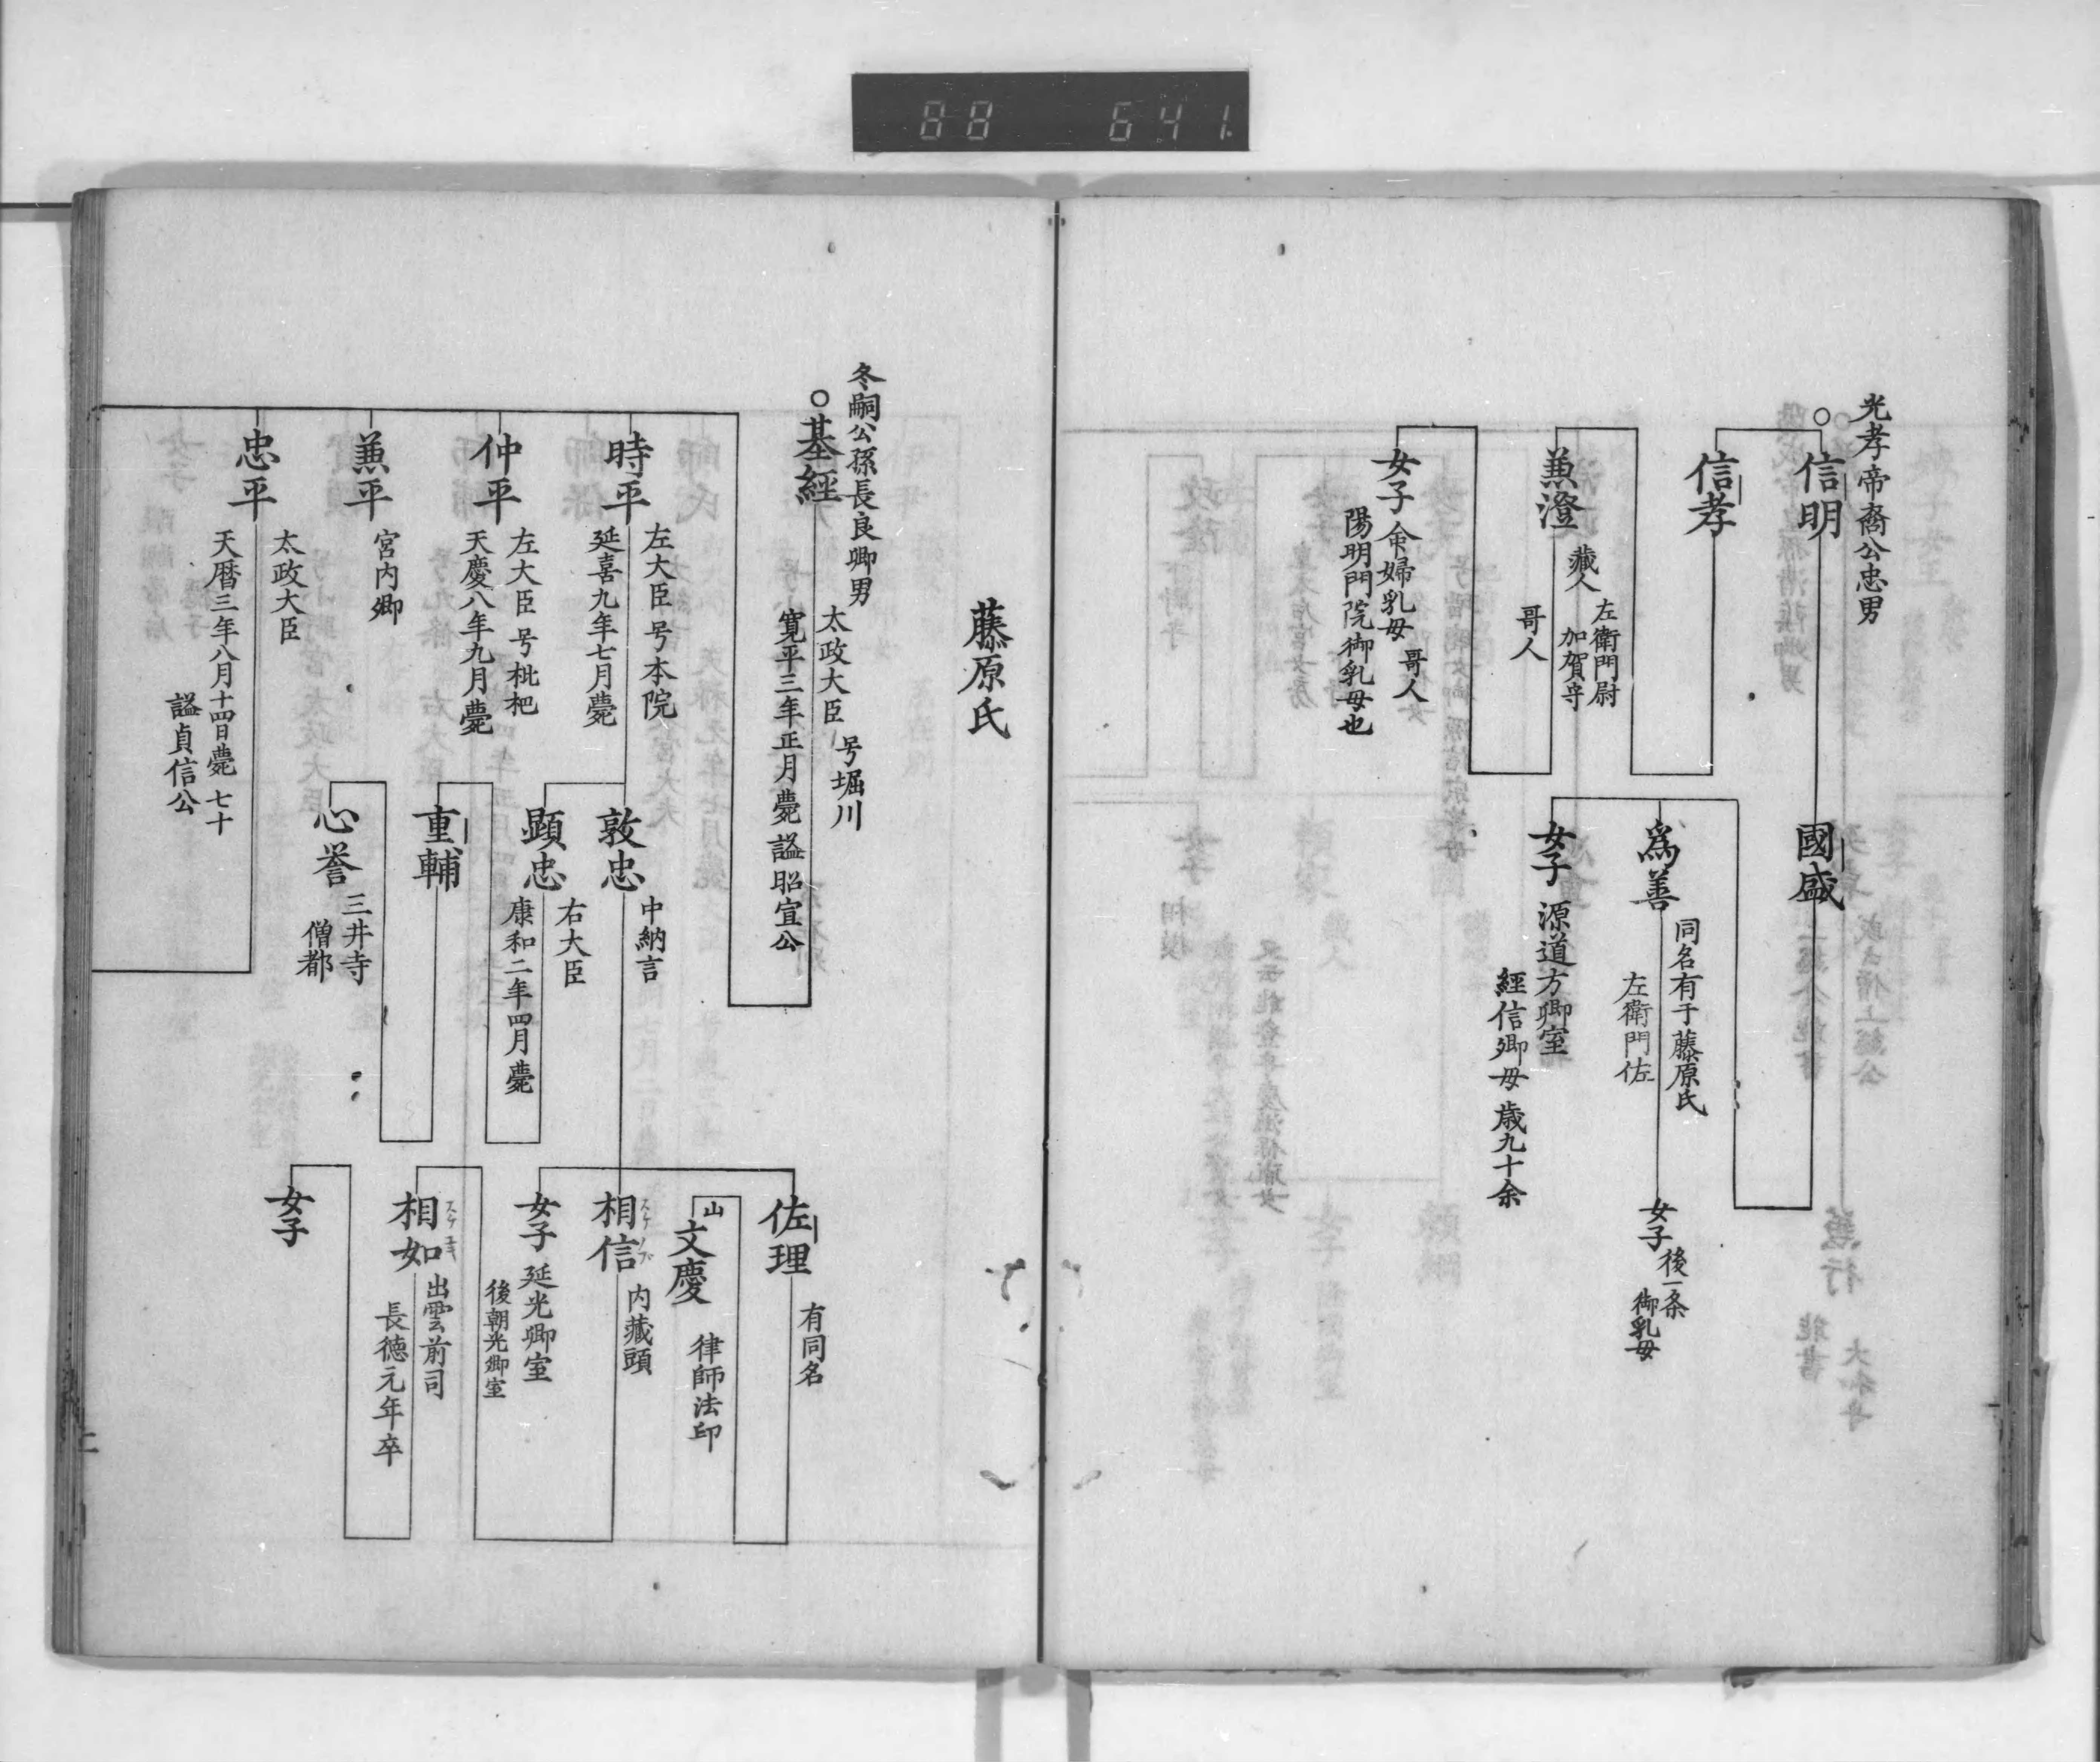 88 641.
光孝帝裔公忠男
信明
信孝
兼澄
藏人
左衛門尉
加賀守
哥人
女子
命婦乳母
哥人
陽明門院御乳母也
國盛
爲善
同名有于藤原氏
左衛門佐
女子
源道方卿室
經信卿母 歳九十余
女子
後一条
御乳母
藤原氏
冬嗣公孫長良卿男
基經
太政大臣 号堀川
寛平三年正月薨 謚昭宣公
時平
左大臣 号本院
延喜九年七月薨
仲平
左大臣 号枇杷
天慶八年九月薨
兼平
宮内卿
忠平
太政大臣
天暦三年八月十四日薨 七十
謚貞信公
敦忠
中納言
顕忠
右大臣
康和二年四月薨
重輔
心誉
三井寺
僧都
佐理
有同名
山
文慶
律師法印
相信
スケノブ
内藏頭
女子
延光卿室
後朝光卿室
相如
出雲前司
長徳元年卒
女子